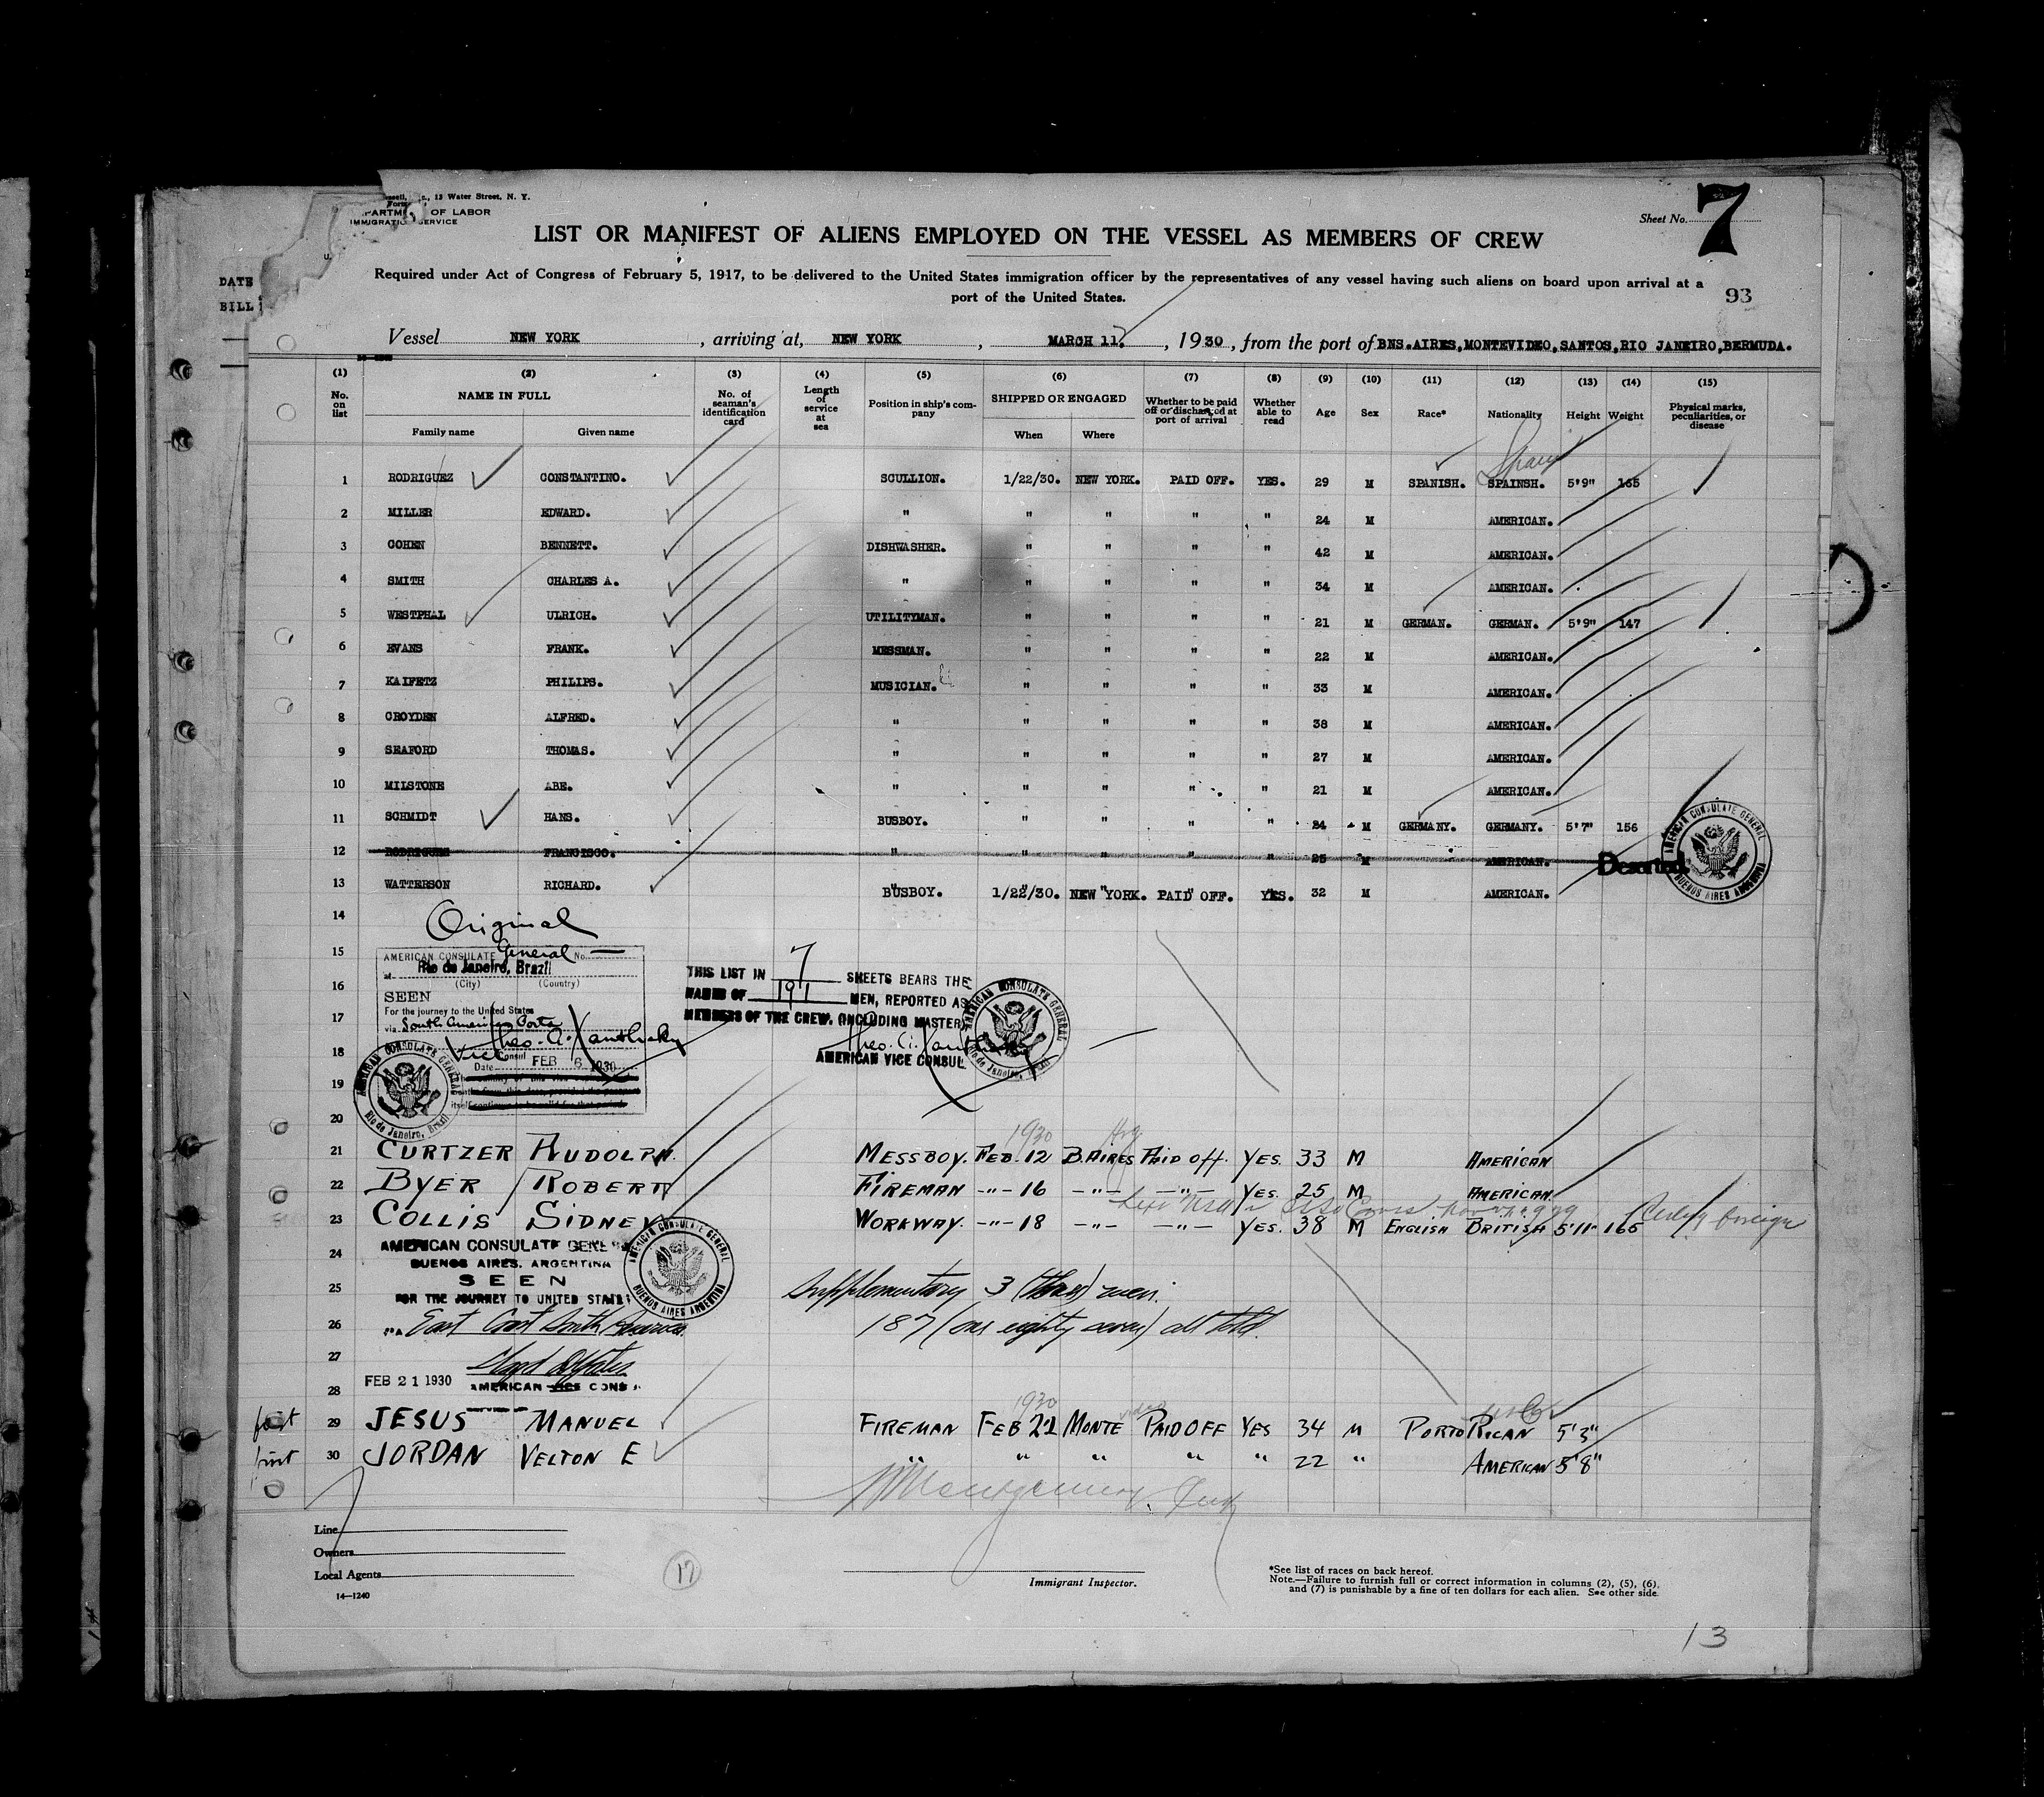 Sheet No. 7
c., 12 Water Street, N. Y.
Form
OF LABOR
IMMIGRATION SERVICE
LIST OR MANIFEST OF ALIENS EMPLOYED ON THE VESSEL AS MEMBERS OF CREW
Required under Act of Congress of February 5, 1917, to be delivered to the United States immigration officer by the representatives of any vessel having such aliens on board upon arrival at a
port of the United States.
93
DATE
BILL
Vessel NEW YORK, arriving at, NEW YORK, MARCH 11, 1930, from the port of BNS.AIRES,MONTEVIDEO,SANTOS,RIO JANEIRO,BERMUDA.
(1) (2) (3) (4) (5) (6) (7) (8) (9) (10) (11) (12) (13) (14) (15)
No. on list NAME IN FULL Family name Given name No. of seaman's identification card Length of service at sea Position in ship's company SHIPPED OR ENGAGED When Where Whether to be paid off or discharged at port of arrival Whether able to read Age Sex Race* Nationality Height Weight Physical marks, peculiarities, or disease
Span
1 RODRIGUEZ CONSTANTINO. SCULLION. 1/22/30. NEW YORK. PAID OFF. YES. 29 M SPANISH. SPAINSH. 5'9" 165
2 MILLER EDWARD. " " " " " 24 M AMERICAN.
3 COHEN BENNETT. DISHWASHER. " " " " 42 M AMERICAN.
4 SMITH CHARLES A. " " " " " 34 M AMERICAN.
5 WESTPHAL ULRICH. UTILITYMAN. " " " " 21 M GERMAN. GERMAN. 5'9" 147
6 EVANS FRANK. MESSMAN. " " " " 22 M AMERICAN.
7 KAIFETZ PHILIPS. MUSICIAN. " " " " 33 M AMERICAN.
8 CROYDEN ALFRED. " " " " " 38 M AMERICAN.
9 SEAFORD THOMAS. " " " " " 27 M AMERICAN.
10 MILSTONE ABE. " " " " " 21 M AMERICAN.
11 SCHMIDT HANS. BUSBOY. " " " " 24 M GERMANY. GERMANY. 5'7" 156
12 RODRIGUEZ FRANCISCO. " " " " " 25 M AMERICAN. Deserted
AMERICAN CONSULATE GENERAL BUENOS AIRES ARGENTINA
13 WATTERSON RICHARD. BUSBOY. 1/22/30. NEW YORK. PAID OFF. YES. 32 M AMERICAN.
14 Original
15 AMERICAN CONSULATE General No.
at Rio de Janeiro, Brazil
(City) (Country)
16 SEEN
17 For the journey to the United States
via South American Ports
18 Vice Consul
Date FEB 6 1930
19
20
AMERICAN CONSULATE GENERAL Rio de Janeiro, Brazil
THIS LIST IN 7 SHEETS BEARS THE
NAMES OF 191 MEN, REPORTED AS
MEMBERS OF THE CREW. (INCLUDING MASTER)
AMERICAN VICE CONSUL
AMERICAN CONSULATE GENERAL Rio de Janeiro, Brazil
1930 Arg.
21 CURTZER RUDOLPH. MESSBOY. FEB. 12 B.AIRES PAID OFF. YES. 33 M AMERICAN
22 BYER ROBERT FIREMAN -"- 16 -"- -"- YES. 25 M AMERICAN.
23 COLLIS SIDNEY WORKWAY. -"- 18 -"- -"- YES. 38 M ENGLISH BRITISH 5'11" 165
24 AMERICAN CONSULATE GENERAL
BUENOS AIRES, ARGENTINA
SEEN
25 FOR THE JOURNEY TO UNITED STATES
26 VIA East Coast South America
27
28 FEB 21 1930 AMERICAN VICE CONSUL
AMERICAN CONSULATE GENERAL BUENOS AIRES ARGENTINA
Supplementary 3 (three) men.
187 (one eighty seven) all told.
1930 video
29 JESUS MANUEL FIREMAN FEB 22 MONTE PAID OFF YES 34 M PORTO RICAN 5'3"
first 30 JORDAN VELTON E " " " " " 22 " AMERICAN 5'8"
Line
Owners
Local Agents
14—1240
17
Immigrant Inspector.
*See list of races on back hereof.
Note.—Failure to furnish full or correct information in columns (2), (5), (6),
and (7) is punishable by a fine of ten dollars for each alien. See other side.
13